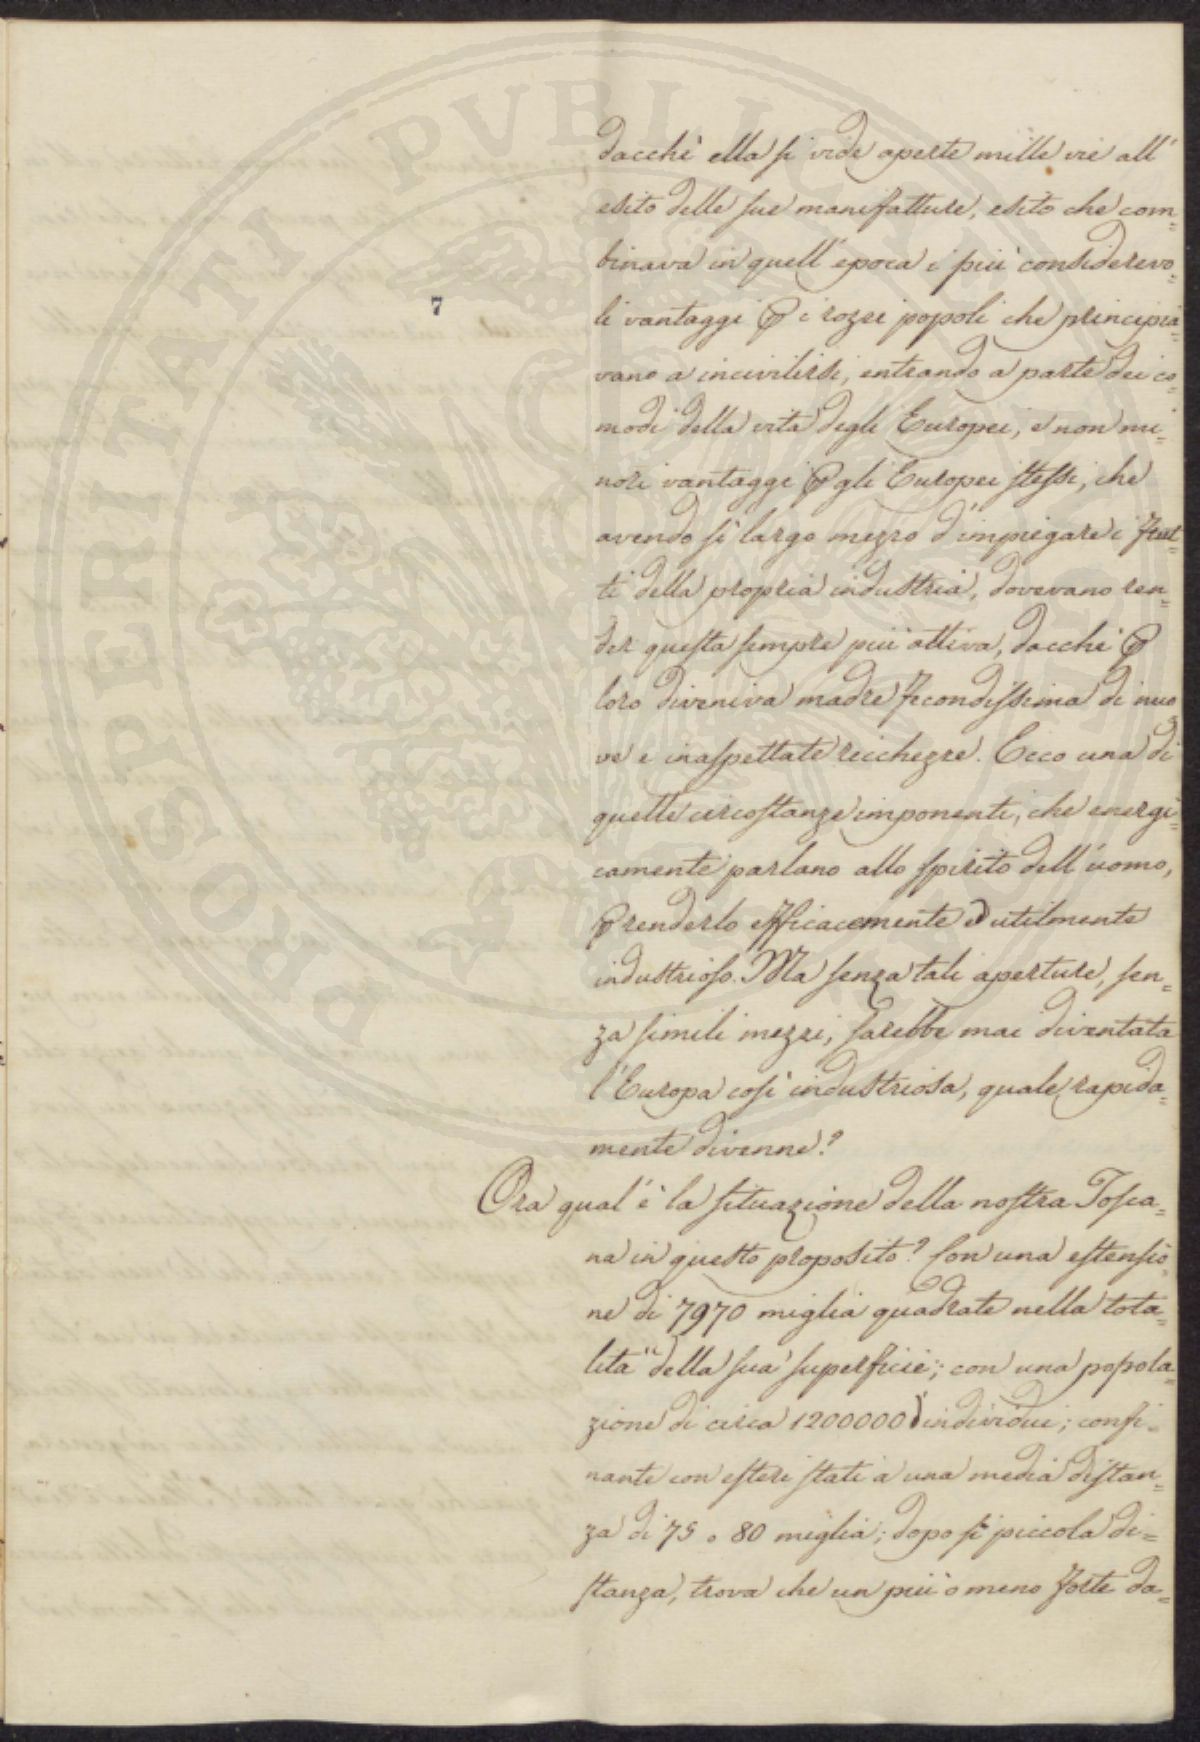 PROSPERITATI PVBLICAE
7
dacchè ella si vide aperte mille vie all'
esito delle sue manifatture, esito che com=
binava in quell'epoca i più considerevo=
li vantaggi p i rozzi popoli che principia=
vano a incivilirsi, entrando a parte dei co=
modi della vita degli Europei, e non mi=
nori vantaggi p gli Europei stessi, che
avendo sì largo mezzo d'impiegare i frut=
ti della propria industria, dovevano ren=
der questa sempre più attiva, dacchè p
loro diveniva madre fecondissima di nuo=
ve e inaspettate ricchezze. Ecco una di
quelle circostanze imponenti, che energi=
camente parlano allo spirito dell'uomo,
p renderlo efficacemente ed utilmente
industrioso. Ma senza tali aperture, sen=
za simili mezzi, sarebbe mai diventata
l'Europa così industriosa, quale rapida=
mente divenne?
Ora qual'è la situazione della nostra Tosca=
na in questo proposito? Con una estensio=
ne di 7970 miglia quadrate nella tota=
lità della sua superficie; con una popola=
zione di circa 1200000 individui; confi=
nante con esteri stati a una media distan=
za di 75 o 80 miglia; dopo sì piccola di=
stanza, trova che un più o meno forte da=